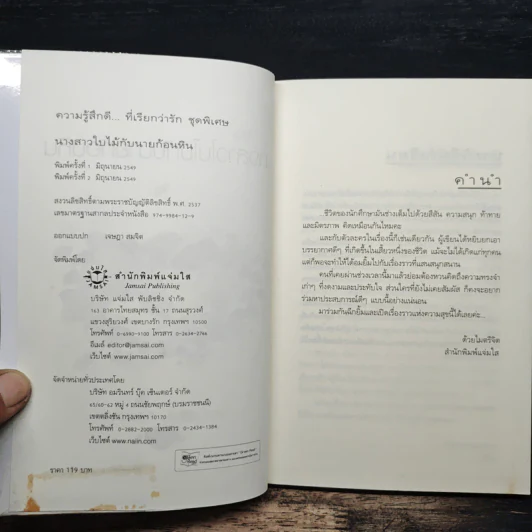 ความรู้สึกดี... ที่เรียกว่ารัก ชุดพิเศษ
นางสาวใบไม้กับนายก้อนหิน
พิมพ์ครั้งที่ 1 มิถุนายน 2549
พิมพ์ครั้งที่ 2 มิถุนายน 2549
สงวนลิขสิทธิ์ตามพระราชบัญญัติลิขสิทธิ์ พ.ศ. 2537
เลขมาตรฐานสากลประจำหนังสือ 974-9984-12-9
ออกแบบปก เจษฎา สมจิต
จัดพิมพ์โดย
สำนักพิมพ์แจ่มใส
Jamsai Publishing
บริษัท แจ่มใส พับลิชชิ่ง จำกัด
163 อาคารไทยสมุทร ชั้น 17 ถนนสุรวงศ์
แขวงสุริยวงศ์ เขตบางรัก กรุงเทพฯ 10500
โทรศัพท์ โทรสาร
อีเมล์ editor@jamsai.com
เว็บไซต์ www.jamsai.com
จัดจำหน่ายทั่วประเทศโดย
บริษัท อมรินทร์ บุ๊ค เซ็นเตอร์ จำกัด
65/60-62 หมู่ 4 ถนนชัยพฤกษ์ (บรมราชชนนี)
เขตตลิ่งชัน กรุงเทพฯ 10170
โทรศัพท์ 0-2882-2000 โทรสาร 0-2434-1384
เว็บไซต์ www.naiin.com
ราคา 119 บาท
คำนำ
ชีวิตของนักศึกษามันช่างเต็มไปด้วยสีสัน ความสนุก ท้าทาย
และมิตรภาพ คิดเหมือนกันไหมคะ
และกับตัวละครในเรื่องนี้ก็เช่นเดียวกัน ผู้เขียนได้หยิบยกเอา
บรรยากาศดีๆ ที่เกิดขึ้นในเสี้ยวหนึ่งของชีวิต แม้จะไม่ได้เกิดแก่ทุกคน
แต่ก็พอจะทำให้ได้อมยิ้มไปกับเรื่องราวที่แสนสนุกสนาน
คนที่เคยผ่านช่วงเวลานี้มาแล้วย่อมต้องหวนคิดถึงความทรงจำ
เก่าๆ ที่งดงามและประทับใจ ส่วนใครที่ยังไม่เคยสัมผัส ก็คงจะอยาก
ร่วมหาประสบการณ์ดีๆ แบบนี้อย่างแน่นอน
มาร่วมกันผลิกยิ้มและเปิดเรื่องราวแห่งความสุขนี้ได้เลยค่ะ...
ด้วยไมตรีจิต
สำนักพิมพ์แจ่มใส